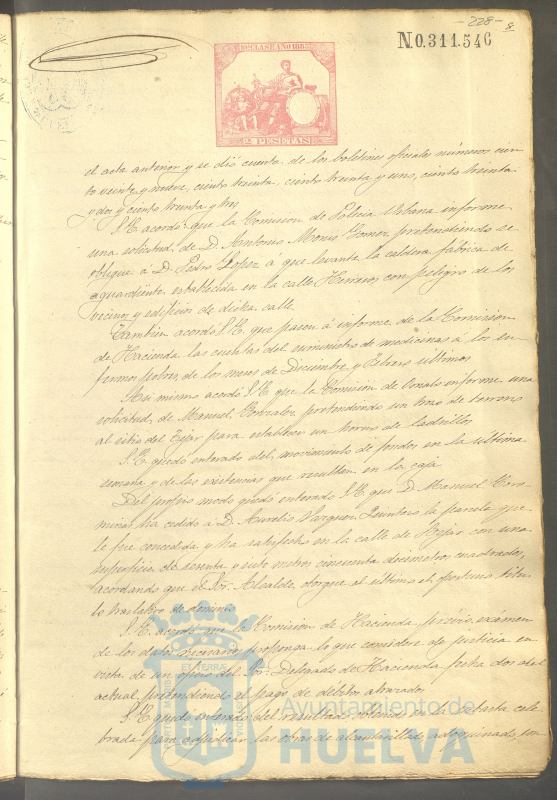 -228- 8
N.0.311.546
10ª CLASE AÑO 188
2 PESETAS
el acta anterior y se dió cuenta de los boletines oficiales números cien-
to veinte y nueve, ciento treinta, ciento treinta y uno, ciento treinta
y dos y ciento treinta y tres
S. E. acordó: que la Comision de Policia Urbana informe
una solicitud de D. Antonio Gomez pretendiendo se
obligue á D. Pedro Lopez a que levante la caldera fábrica de
aguardiente establecida en la calle Herreros con peligro de los
vecinos y edificios de dicha calle.
Tambien acordó S. E. que pasen á informe de la Comision
de Hacienda las cuentas del suministro de medicinas á los en-
fermos pobres de los meses de Diciembre y Febrero ultimos.
Asi mismo acordó S. E. que la Comision de Ornato informe una
solicitud de Manuel Gonzalez pretendiendo un trozo de terreno
al sitio del para establecer un horno de ladrillos
S. E. quedó enterado del movimiento de fondos en la ultima
semana y de las existencias que resultan en la caja
Del propio modo quedó enterado S. E. que D. Manuel
ha cedido á D. Aurelio Vazquez Quintero la parcela que
le fue concedida y ha satisfecho en la calle de Bejar con una
superficie de y siete metros cincuenta decimetros cuadrados,
acordando que el Sr. Alcalde otorgue al ultimo el oportuno titu-
lo traslativo de dominio
S. E. acordó que la Comision de Hacienda prévio exámen
de los datos necesarios proponga lo que considere de justicia en
vista de un oficio del Sr. Delegado de Hacienda fecha dos del
actual pretendiendo el pago de débitos atrasados
S. E. quedó enterado del resultado obtenido en la subasta cele-
brada para las obras de alcantarillado, adoquinado
Ayuntamiento de
HUELVA